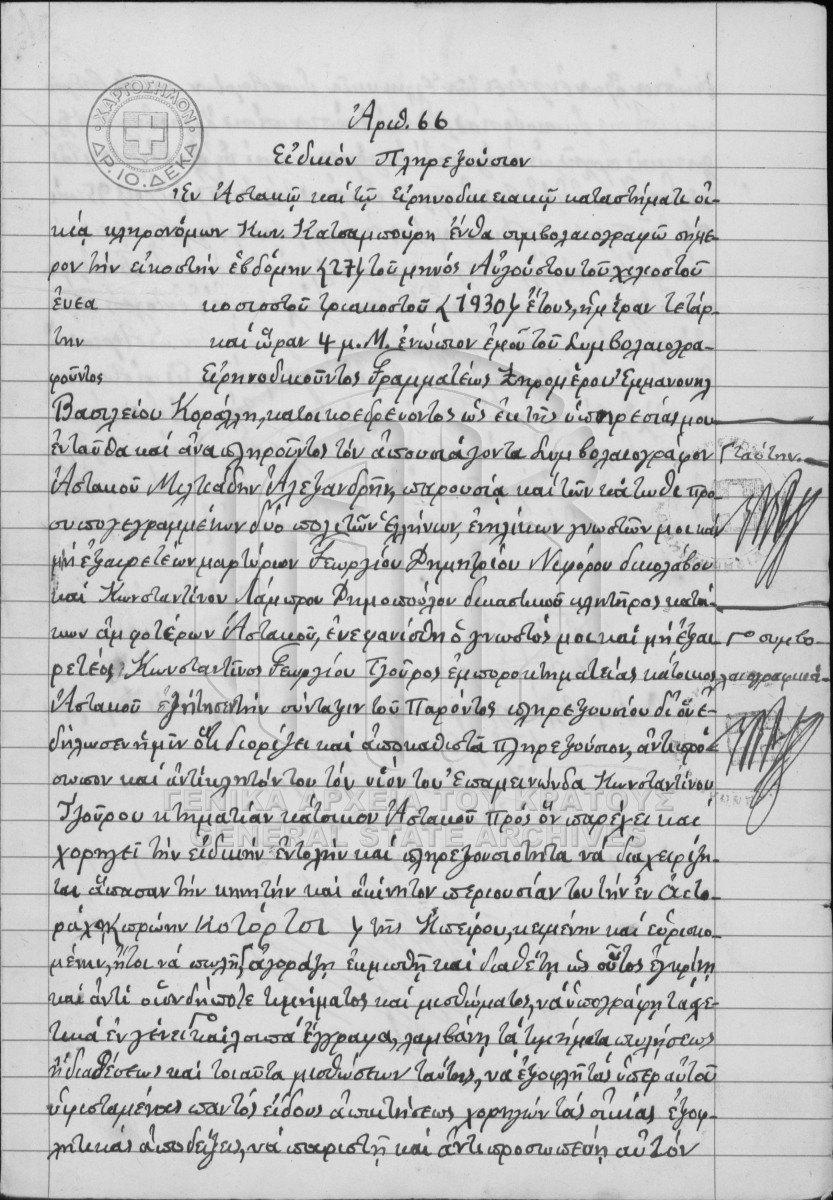 ΧΑΡΤΟΣΗΜΟΝ
ΔΡ. 10. ΔΕΚΑ
Ἀριθ. 66
Εἰδικόν Πληρεξούσιον
Ἐν Ἀστακῷ καί τῷ εἰρηνοδικειακῷ καταστήματι οἰ-
κίᾳ κληρονόμων Κων. Κατσαμπούρη ἔνθα συμβολαιογραφῶ σήμε-
ρον τήν εἰκοστήν ἑβδόμην (27) τοῦ μηνός Αὐγούστου τοῦ χιλιοστοῦ
ἐνεα κοσιοστοῦ τριακοστοῦ (1930) ἔτους, ἡμέραν τετάρ-
την καί ὥραν 4 μ.Μ. ἐνώπιον ἐμοῦ τοῦ Συμβολαιογρα-
φοῦντος Εἰρηνοδικοῦντος Γραμματέως Ξηρομέρου Ἐμμανουήλ
Βασιλείου Κοράλλη, κατοικοεδρεύοντος ὡς ἐκ τῆς ὑπηρεσίας μου
ἐνταῦθα καί ἀναπληροῦντος τόν ἀπουσιάζοντα Συμβολαιογράφον
Ἀστακοῦ Μιλτιάδην Ἀλεξανδρῆν, παρουσίᾳ καί τῶν κάτωθι προ-
συπογεγραμμένων δύο πολιτῶν Ἑλλήνων, ἐνηλίκων γνωστῶν μοι καί
μή ἐξαιρετέων μαρτύρων Γεωργίου Δημητρίου δικολάβου
καί Κωνσταντίνου Λάμπρου Δημοπούλου δικαστικοῦ κλητῆρος κατοί-
κων ἀμφοτέρων Ἀστακοῦ, ἐνεφανίσθη ὁ γνωστός μοι καί μή ἐξαι-
ρετέος Κωνσταντῖνος Γεωργίου Τζοῦρος ἐμποροκτηματείας κάτοικος
Ἀστακοῦ ἐζήτησε τήν σύνταξιν τοῦ Παρόντος πληρεξουσίου δι' οὗ ἐ-
δήλωσεν ἡμῖν ὅτι διορίζει καί ἀποκαθιστᾷ πληρεξούσιον, ἀντιπρό-
σωπον καί ἀντίκλητόν του τόν υἱόν του Ἐπαμεινώνδα Κωνσταντίνου
Τζούρου κτηματίαν κάτοικον Ἀστακοῦ πρός ὅν παρέχει καί
χορηγεῖ τήν εἰδικήν ἐντολήν καί πληρεξουσιότητα νά διαχειρίζη-
ται ἅπασαν τήν κινητήν καί ἀκίνητον περιουσίαν του τήν ἐν Ἀετο-
ράχῃ (πρώην Κοτόρτσι) τῆς Ἠπείρου, κειμένην καί εὑρισκο-
μένην, ἤτοι νά πωλῇ, ἀγοράζῃ ἐκμισθῇ καί διαθέτῃ ὡς οὗτος ἐγκρίνῃ
καί ἀντί οἱουνδήποτε τιμήματος καί μισθώματος, νά ὑπογράφῃ τά σχε-
τικά ἐν γένει καί λοιπά ἔγγραφα, λαμβάνῃ τά τιμήματα πωλήσεως
ἤ διαθέσεως καί τοιαῦτα μισθώσεων ταύτης, νά ἐξοφλῇ τάς ὑπέρ αὐτοῦ
ὑφισταμένας παντός εἴδους ἀπαιτήσεις χορηγῶν τάς οἰκείας ἐξοφ-
λητικάς ἀποδείξεις, νά παριστῇ καί ἀντιπροσωπεύῃ αὐτόν
Γ ταύτην.
Γο συμβο-
λαιογραφικά
ΓΕΝΙΚΑ ΑΡΧΕΙΑ ΤΟΥ ΚΡΑΤΟΥΣ
GENERAL STATE ARCHIVES